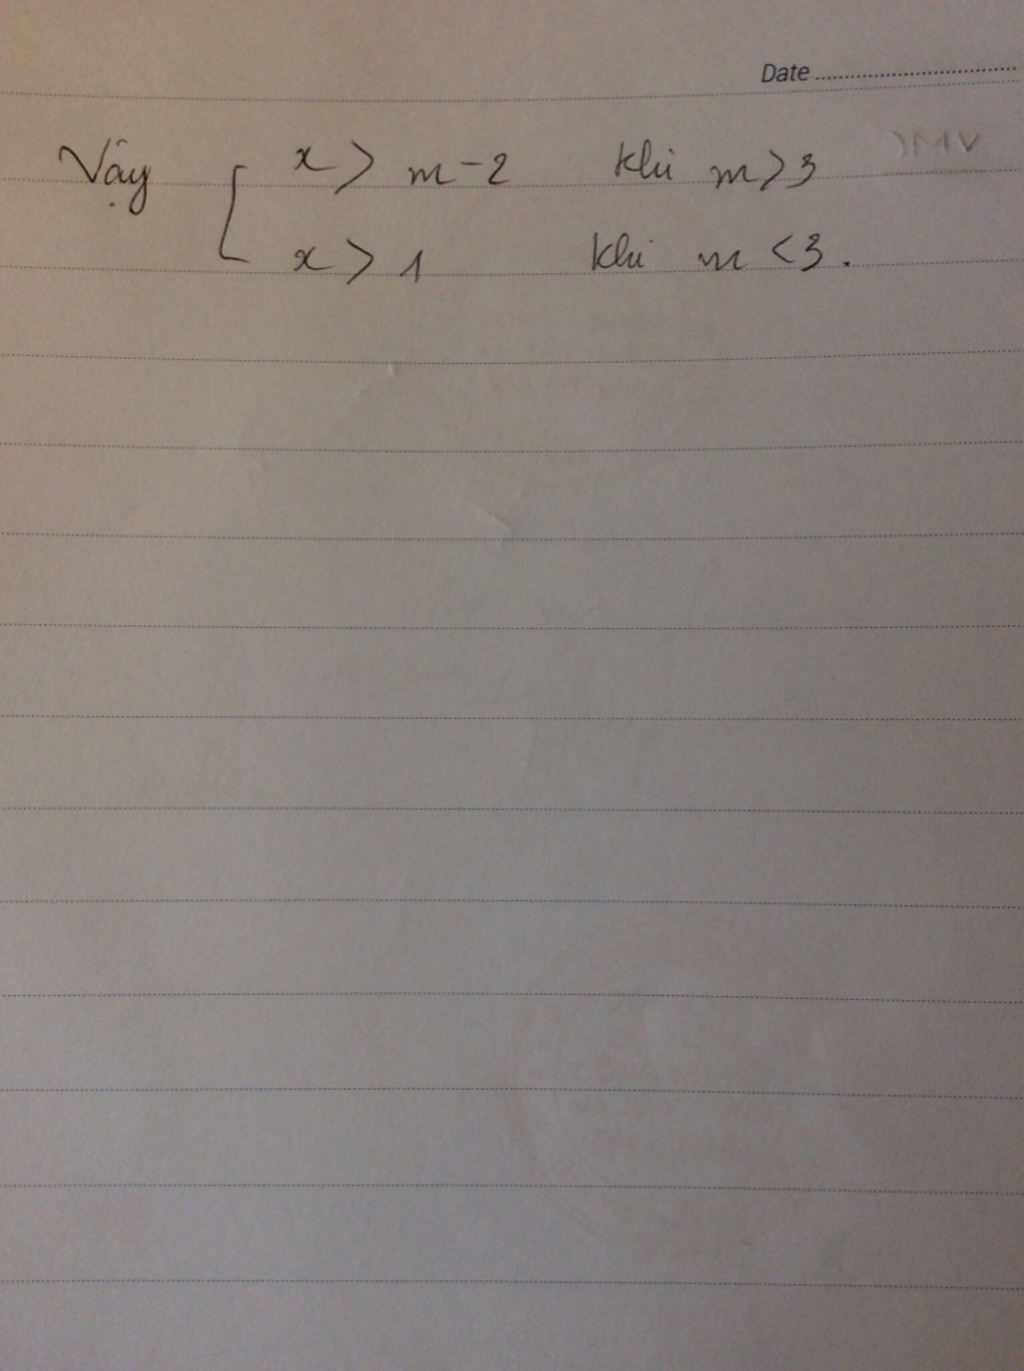 Date
Vậy [ x > m-2 khi m>3
x > 1 khi m <3.